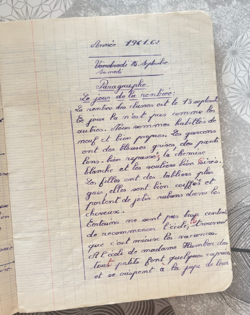 Année 1961.62
Vendredi 15 Septembre
Samedi
Paragraphe
Le jour de la rentrée
La rentrée des classes est le 15 septembre
Ce jour là n'est pas comme les
autres. Nous sommes habillés de
neuf et bien propres. Les garçons
ont des blouses grises, des panta
lons bien repassés, la chemise
blanche et les souliers bien cirés.
Les filles ont des tabliers plus
gais, elles sont bien coiffées et
portent de jolis rubans dans les
cheveux.
Certains ne sont pas trop contents
de recommencer l'école,
que c'est mieux les vacances.
A l'école de madame
les petits font quelques
et se